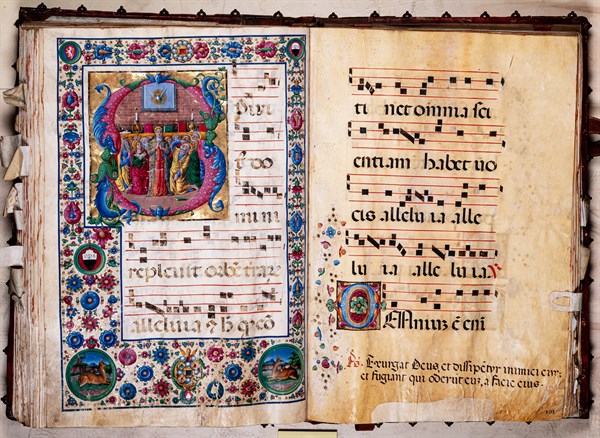 S piri
t9 do
mini
repleuit orbē terrar
alleluia
ti net omnia sci
entiam habet uo
cis alle lu ia alle
lu ia alle lu ia.
Ps. Exurgat Deus, et dissipentur inimici eius:
et fugiant qui oderunt eum, a facie eius.